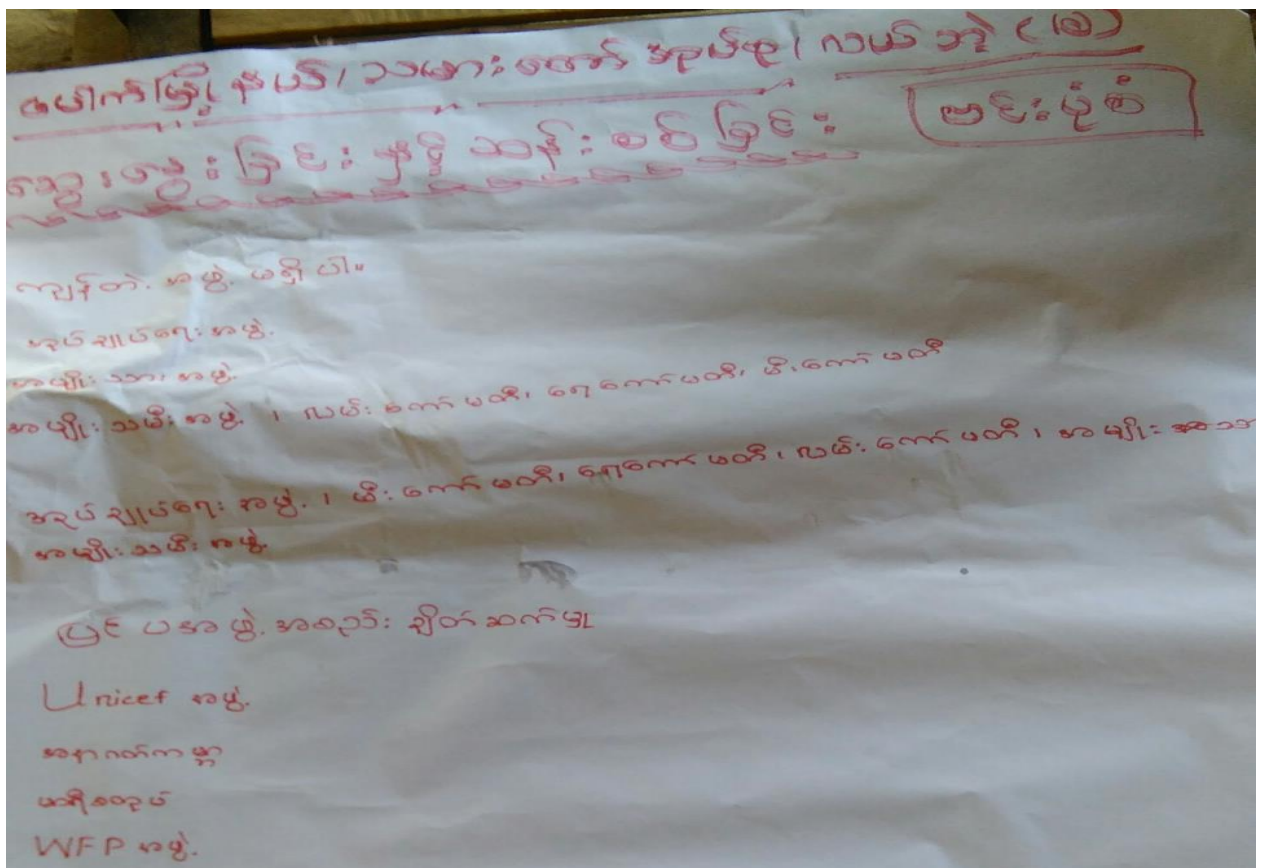 ပေါက်မြို့နယ်၊ သမားတော် အုပ်စု၊ လယ်ဘဲ (ခြ)
ဆွေးနွေးခြင်းနှင့် ဆန်းစစ်ခြင်း ဗင်းပုံစံ
ကျန်တဲ့ အဖွဲ့ မရှိပါ။
အုပ်ချုပ်ရေးအဖွဲ့
အမျိုးသားအဖွဲ့
အမျိုးသမီးအဖွဲ့ ၊ လမ်းကော်မတီ၊ ရေကော်မတီ၊ မီးကော်မတီ
အုပ်ချုပ်ရေးအဖွဲ့ ၊ မီးကော်မတီ၊ ရေကော်မတီ၊ လမ်းကော်မတီ ၊ အမျိုး
အမျိုးသမီးအဖွဲ့
ပြင်ပအဖွဲ့အစည်း ချိတ်ဆက်မှု
Unicef အဖွဲ့
အနာဂတ်ကမ္ဘာ
မာရီစတုပ်
WFP အဖွဲ့